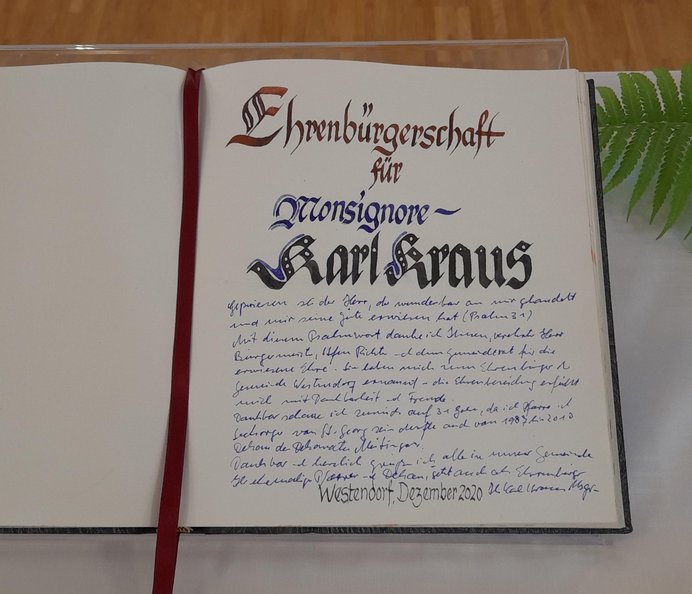 Ehrenbürgerschaft
für
Monsignore –
Karl Kraus
Gepriesen sei der Herr, der wunderbar an mir gehandelt
und mir seine Güte erwiesen hat (Psalm 31)
Mit diesem Psalmwort danke ich Ihnen, verehrter Herr
Bürgermeister, Steffen Richter und dem Gemeinderat für die
erwiesene Ehre. Sie haben mich zum Ehrenbürger d.
Gemeinde Westendorf ernannt – die Ehrenbereidung erfüllt
mich mit Dankbarkeit und Freude.
Dankbar schaue ich zurück auf 31 Jahre, da ich Pfarrer
Seelsorger von St. Georg sein durfte und von 1983 bis 2010
Dekan des Dekanates Meitingen.
Dankbar und herzlich grüße ich alle in unserer Gemeinde
als ehemaliger Pfarrer und Dekan, jetzt auch als Ehrenbürger
Westendorf, Dezember 2020 Ihr Karl Kraus Msgr.